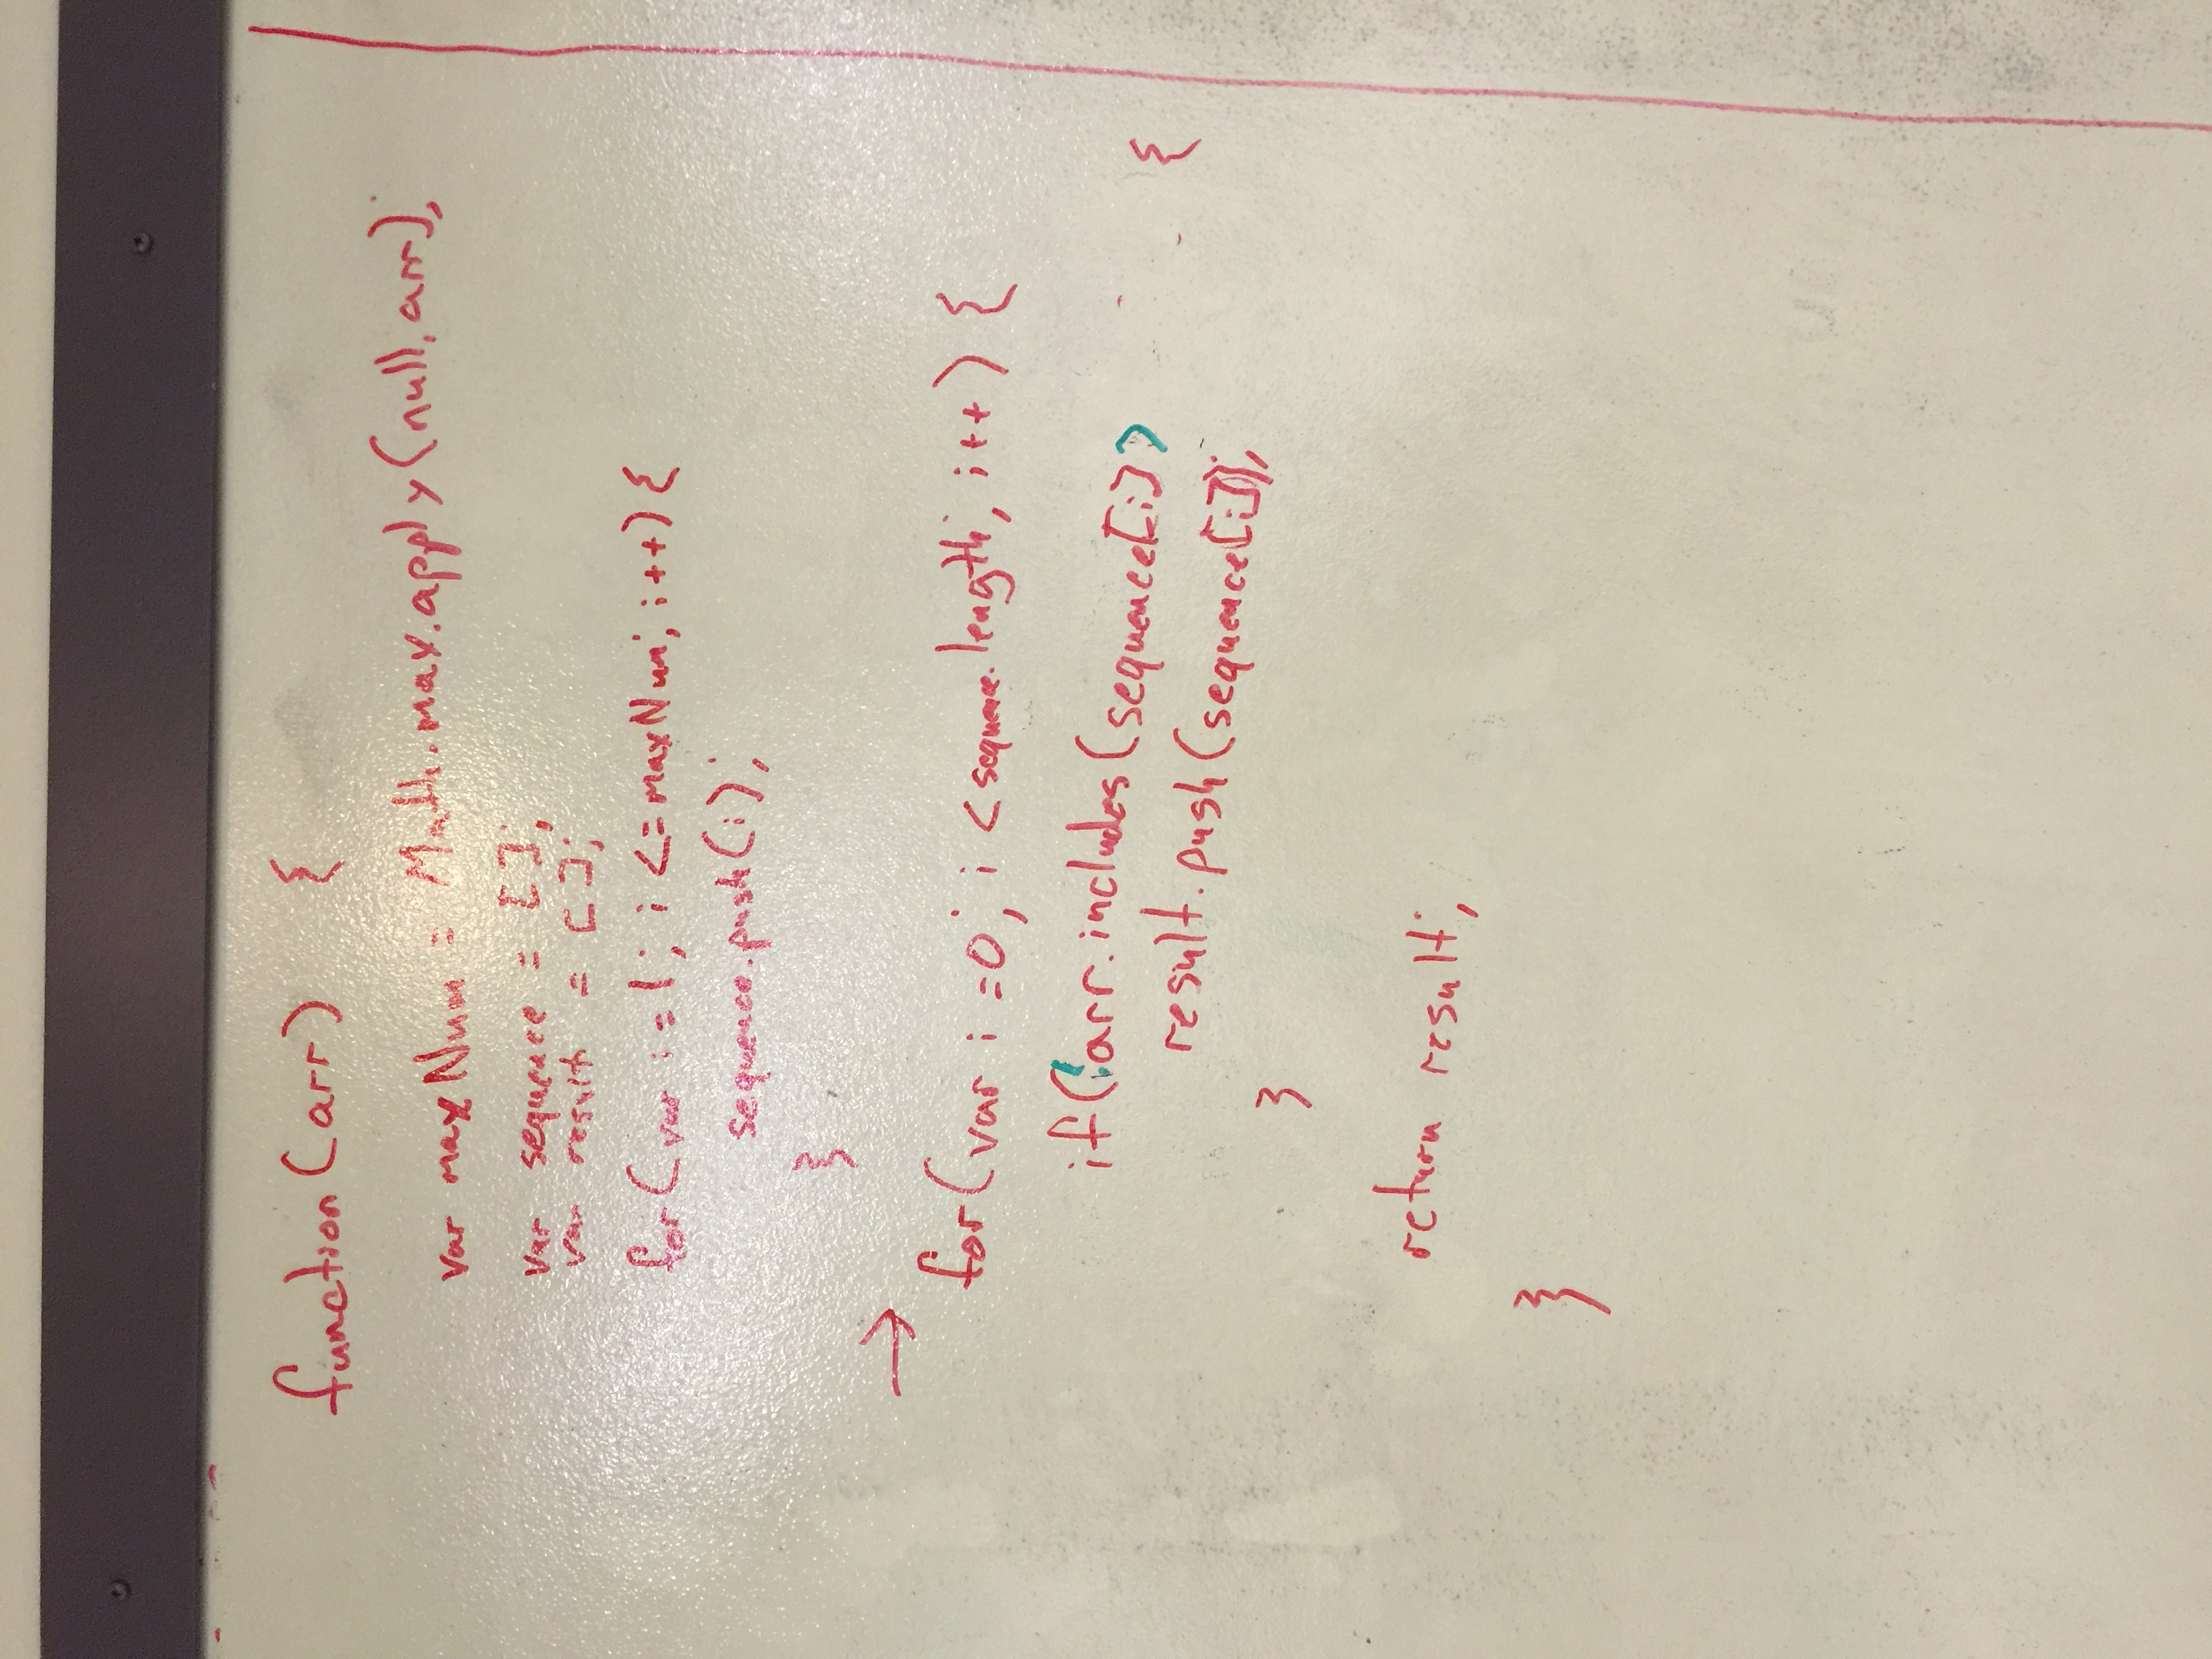 function(arr) {
var maxNum = Math.max.apply(null, arr);
var sequence = [];
var result = [];
for(var i=1; i<=maxNum; i++){
sequence.push(i);
}
→
for(var i=0; i<sequence.length; i++) {
if(!arr.includes(sequence[i]) {
result.push(sequence[i]);
}
return result;
}